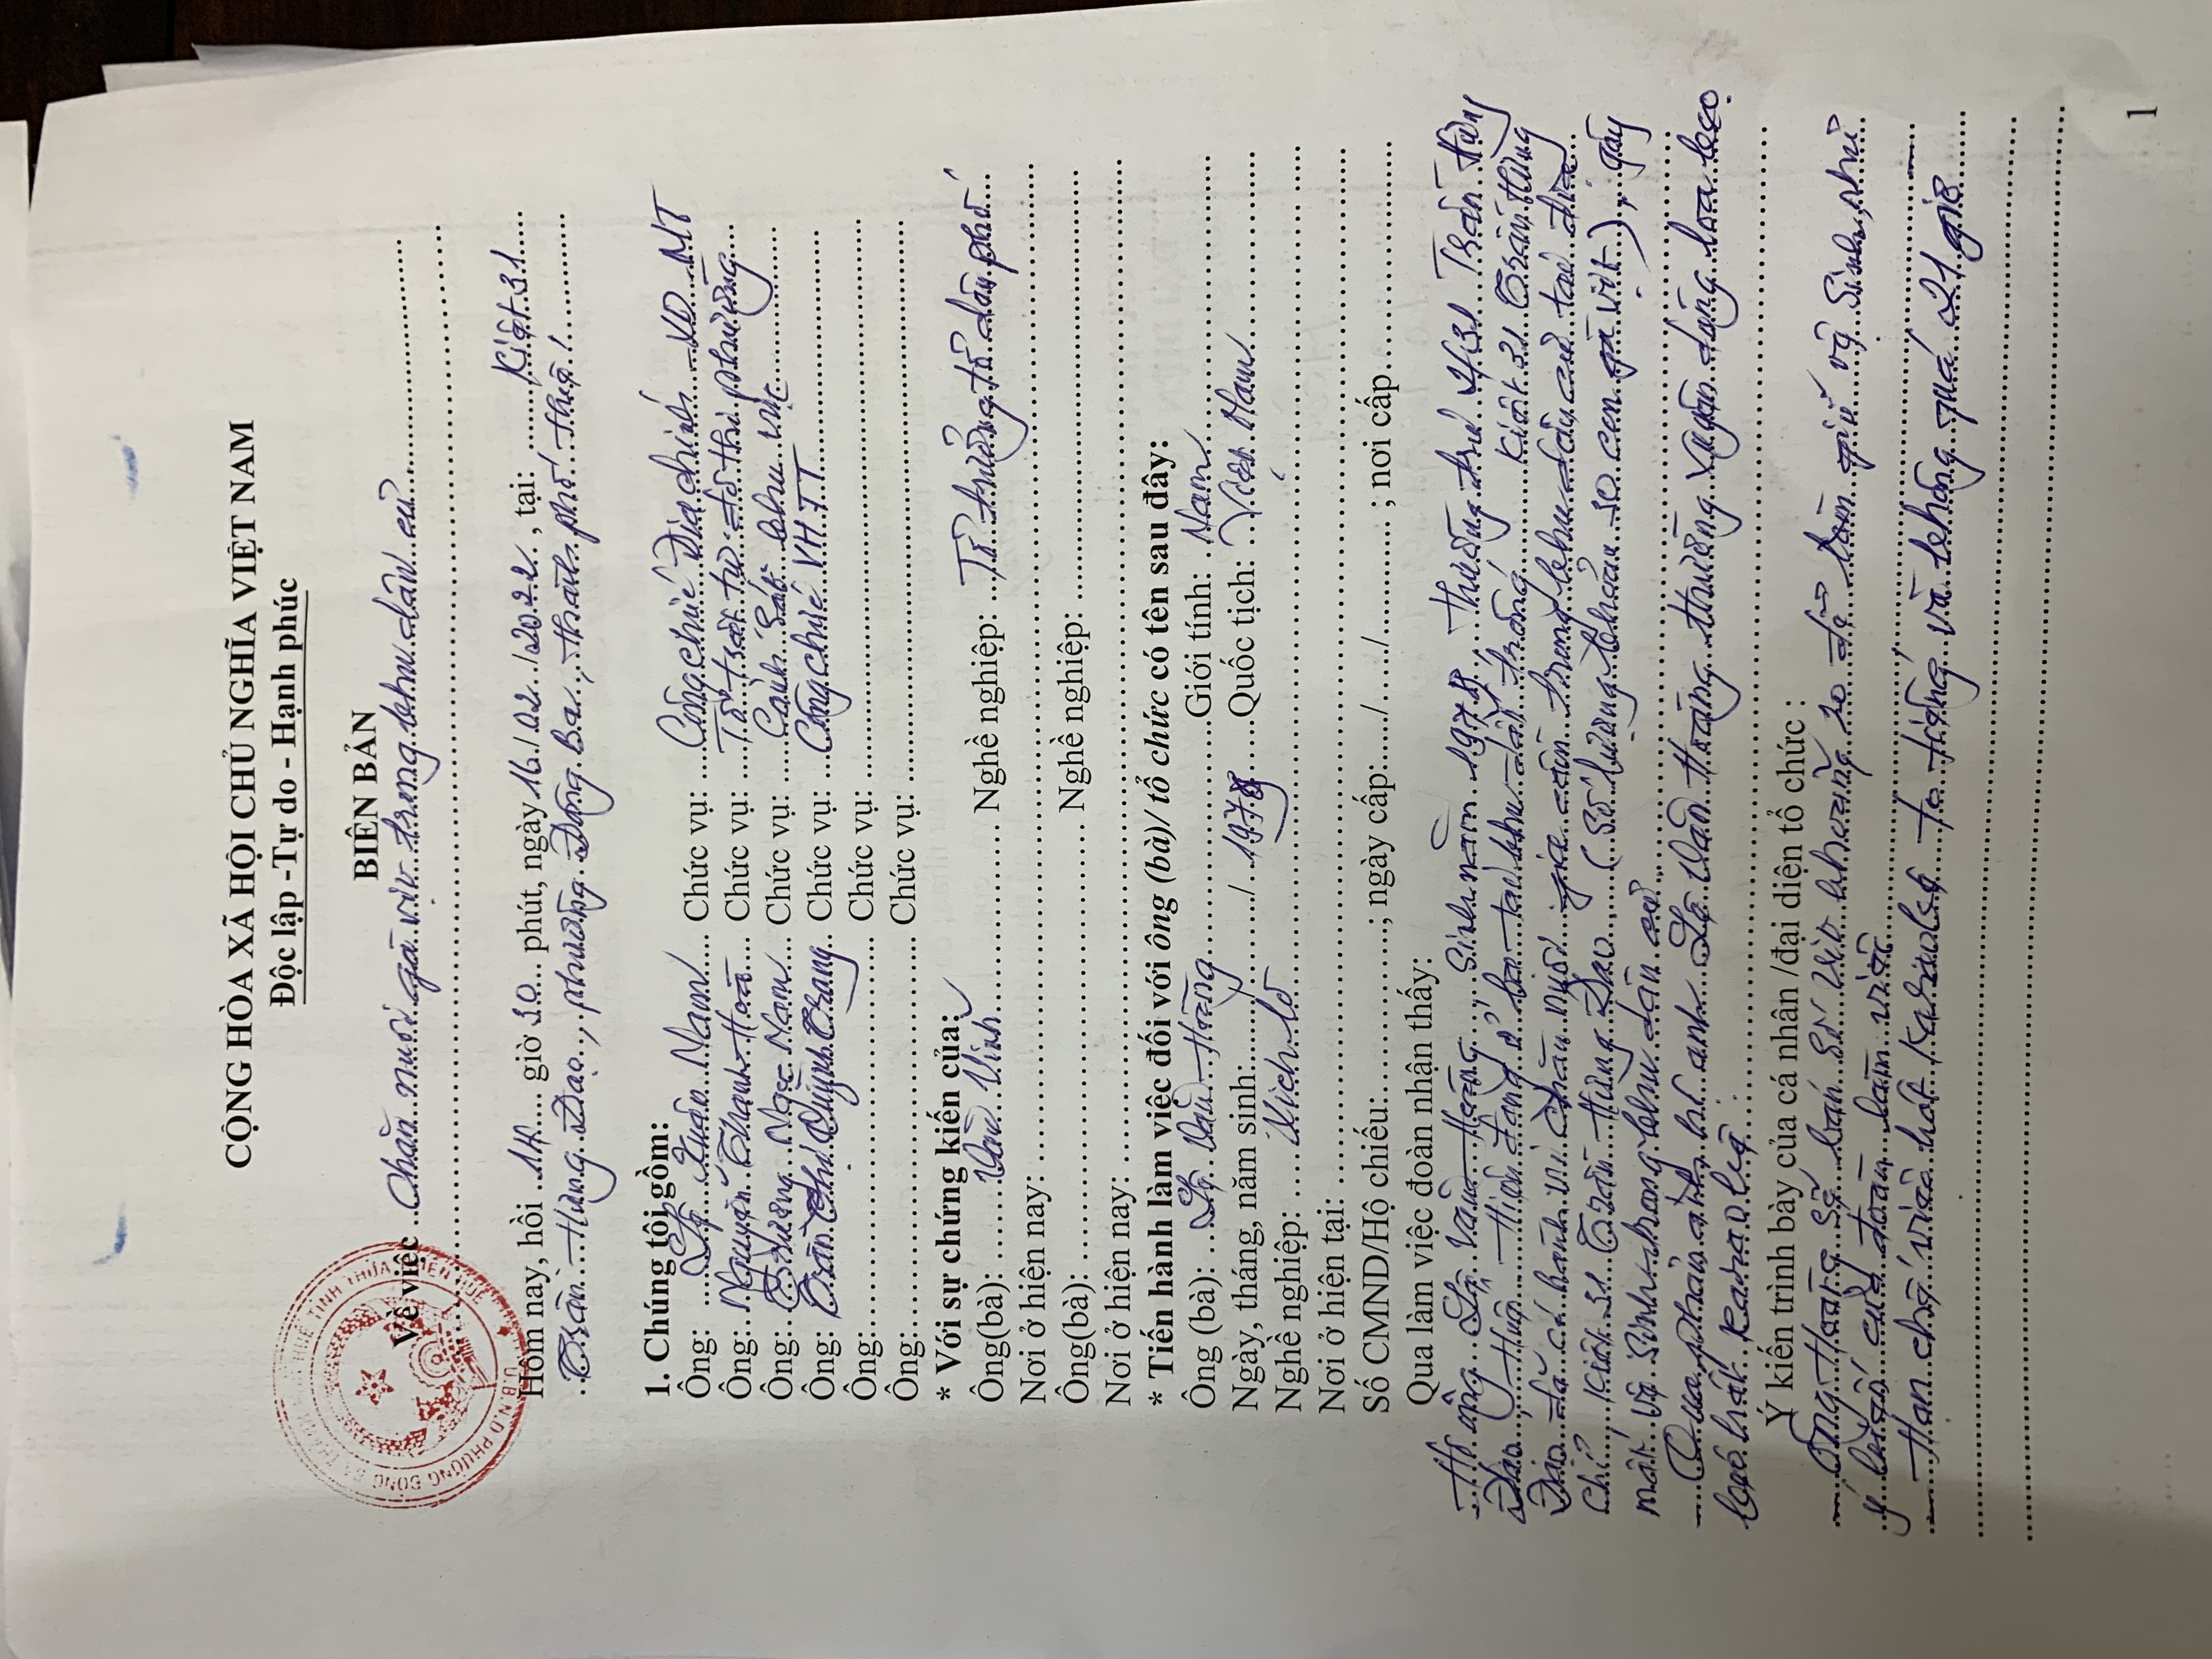 CỘNG HÒA XÃ HỘI CHỦ NGHĨA VIỆT NAM
Độc lập -Tự do - Hạnh phúc
BIÊN BẢN
Về việc ..Chăn nuôi gà vịt trong khu dân cư
Hôm nay, hồi ..14.... giờ 30... phút, ngày 16./.02../2022.., tại: ........Kiệt 31....
..Trần..Hưng..Đạo.., phường..Đông..Ba.., thành..phố..Huế.
1. Chúng tôi gồm:
Ông: ....Lê..Xuân..Nam.... Chức vụ: ....Công chức Địa chính - XD - MT
Ông:..Nguyễn Thanh Hoà.... Chức vụ: ....Tổ trật tự đô thị phường...
Ông:..Trương Ngọc Nam.... Chức vụ: ....Cảnh sát khu vực....
Ông: Trần Thị Quỳnh Trang.. Chức vụ: ...Công chức VH.TT....
Ông:........ Chức vụ:........
Ông:........ Chức vụ:........
* Với sự chứng kiến của:
Ông(bà): ........Văn Vinh........ Nghề nghiệp: ...Tổ trưởng tổ dân phố..
Nơi ở hiện nay: ........
Ông(bà): ........ Nghề nghiệp: ........
Nơi ở hiện nay: ........
* Tiến hành làm việc đối với ông (bà)/ tổ chức có tên sau đây:
Ông (bà): ..Lê Văn Hoàng........Giới tính: .Nam........
Ngày, tháng, năm sinh:......../..1978....Quốc tịch: ..Việt Nam........
Nghề nghiệp: ....Xích lô........
Nơi ở hiện tại: ........
Số CMND/Hộ chiếu:........; ngày cấp:....../....../........ ; nơi cấp........
Qua làm việc đoàn nhận thấy:
...Hộ ông Lê Văn Hoàng, sinh năm 1978, thường trú 4/31 Trần Hưng
Đạo, Huế. Hiện đang ở tại khu đất trống kiệt 31 Trần Hưng
Đạo đã có hành vi chăn nuôi gia cầm trong khu dân cư tại địa
chỉ kiệt 31 Trần Hưng Đạo (số lượng khoảng 30 con gà vịt), gây
mất vệ sinh trong khu dân cư.
Qua phản ánh, hộ anh Lê Văn Hoàng thường xuyên dùng loa kẹo
kéo hát karaoke.
Ý kiến trình bày của cá nhân /đại diện tổ chức :
Ông Hoàng sẽ bán số vịt khoảng 20 để giữ vệ sinh, như
ý kiến của đoàn làm việc
Hạn chế việc hát karaoke to tiếng và không quá 21 giờ
1